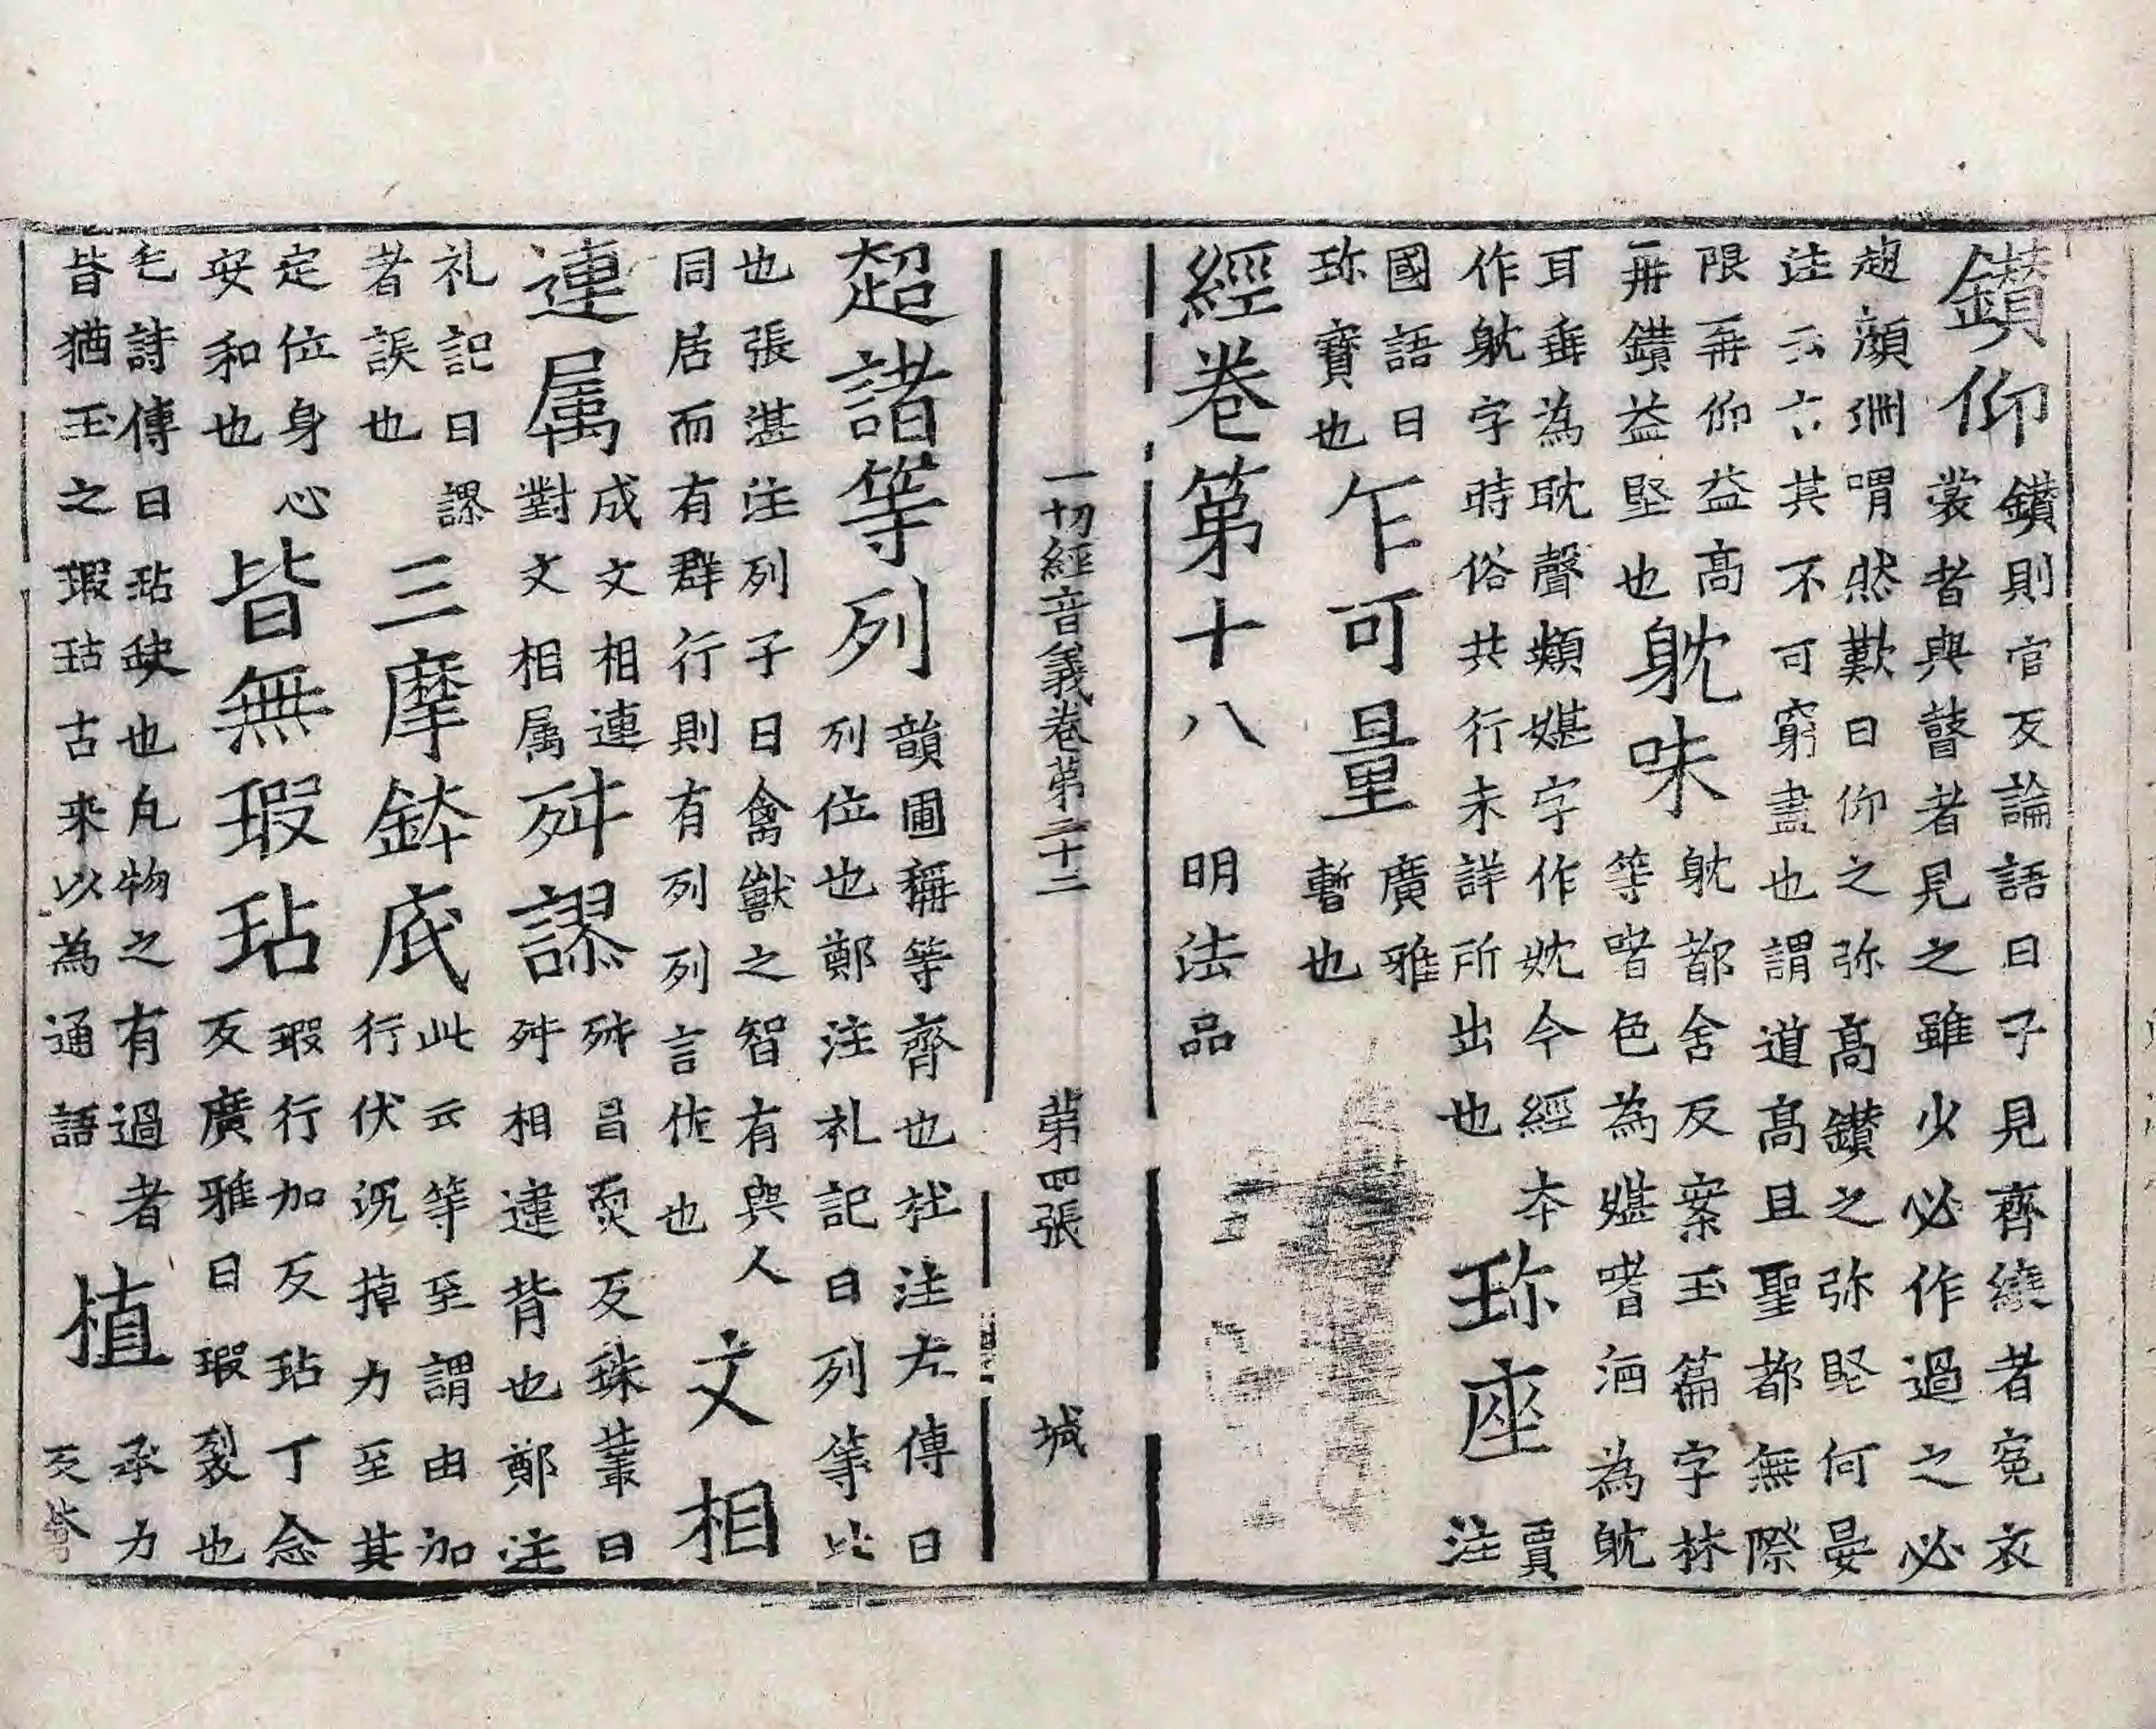 鑚仰鑚則官反論語曰子見齊縗者冕衣
裳者與瞽者見之雖少必作過之必
趍顔淵喟然歎曰仰之弥高鑚之弥堅何晏
注云云其不可窮盡也謂道高且聖都無際
限再仰益高
再鑚益堅也
躭味躭都含反案玉篇字林
等嗜色為媅嗜酒為躭
耳垂為耽聲類媅字作妉今經本
作躭字時俗共行未詳所出也
珎座賈
注
國語曰
珎寶也
乍可量廣雅
暫也
經卷第十八 明法品
一切經音義卷第二十二 第四張 城
超諸等列韻圃稱等齊也杜注左傳曰
列位也鄭注礼記曰列等比
也張湛注列子曰禽獸之智有與人
同居而有群行則有列列言佐也
文相
連属成文相連
對文相属
舛謬舛昌耎反珠叢曰
舛相違背也鄭注
礼記曰謬
者誤也
三摩鉢底此云等至謂由加
行伏沉掉力至其
定位身心
安和也
皆無瑕玷瑕行加反玷丁念
反廣雅曰瑕裂也
毛詩傳曰玷缺也凡物之有過者
皆猶玉之瑕玷古來以為通語
植承力
反